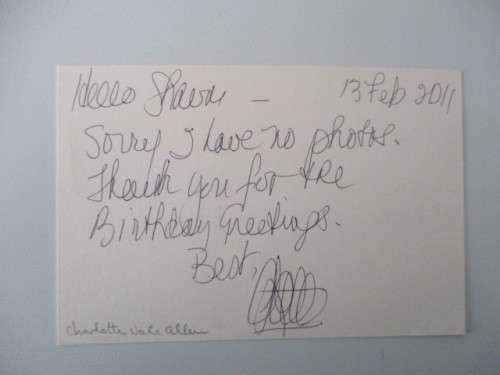 Hello Shawn — 13 Feb 2011
Sorry I have no photos.
Thank you for the
Birthday Greetings.
Best,
Charlotte Vale Allen